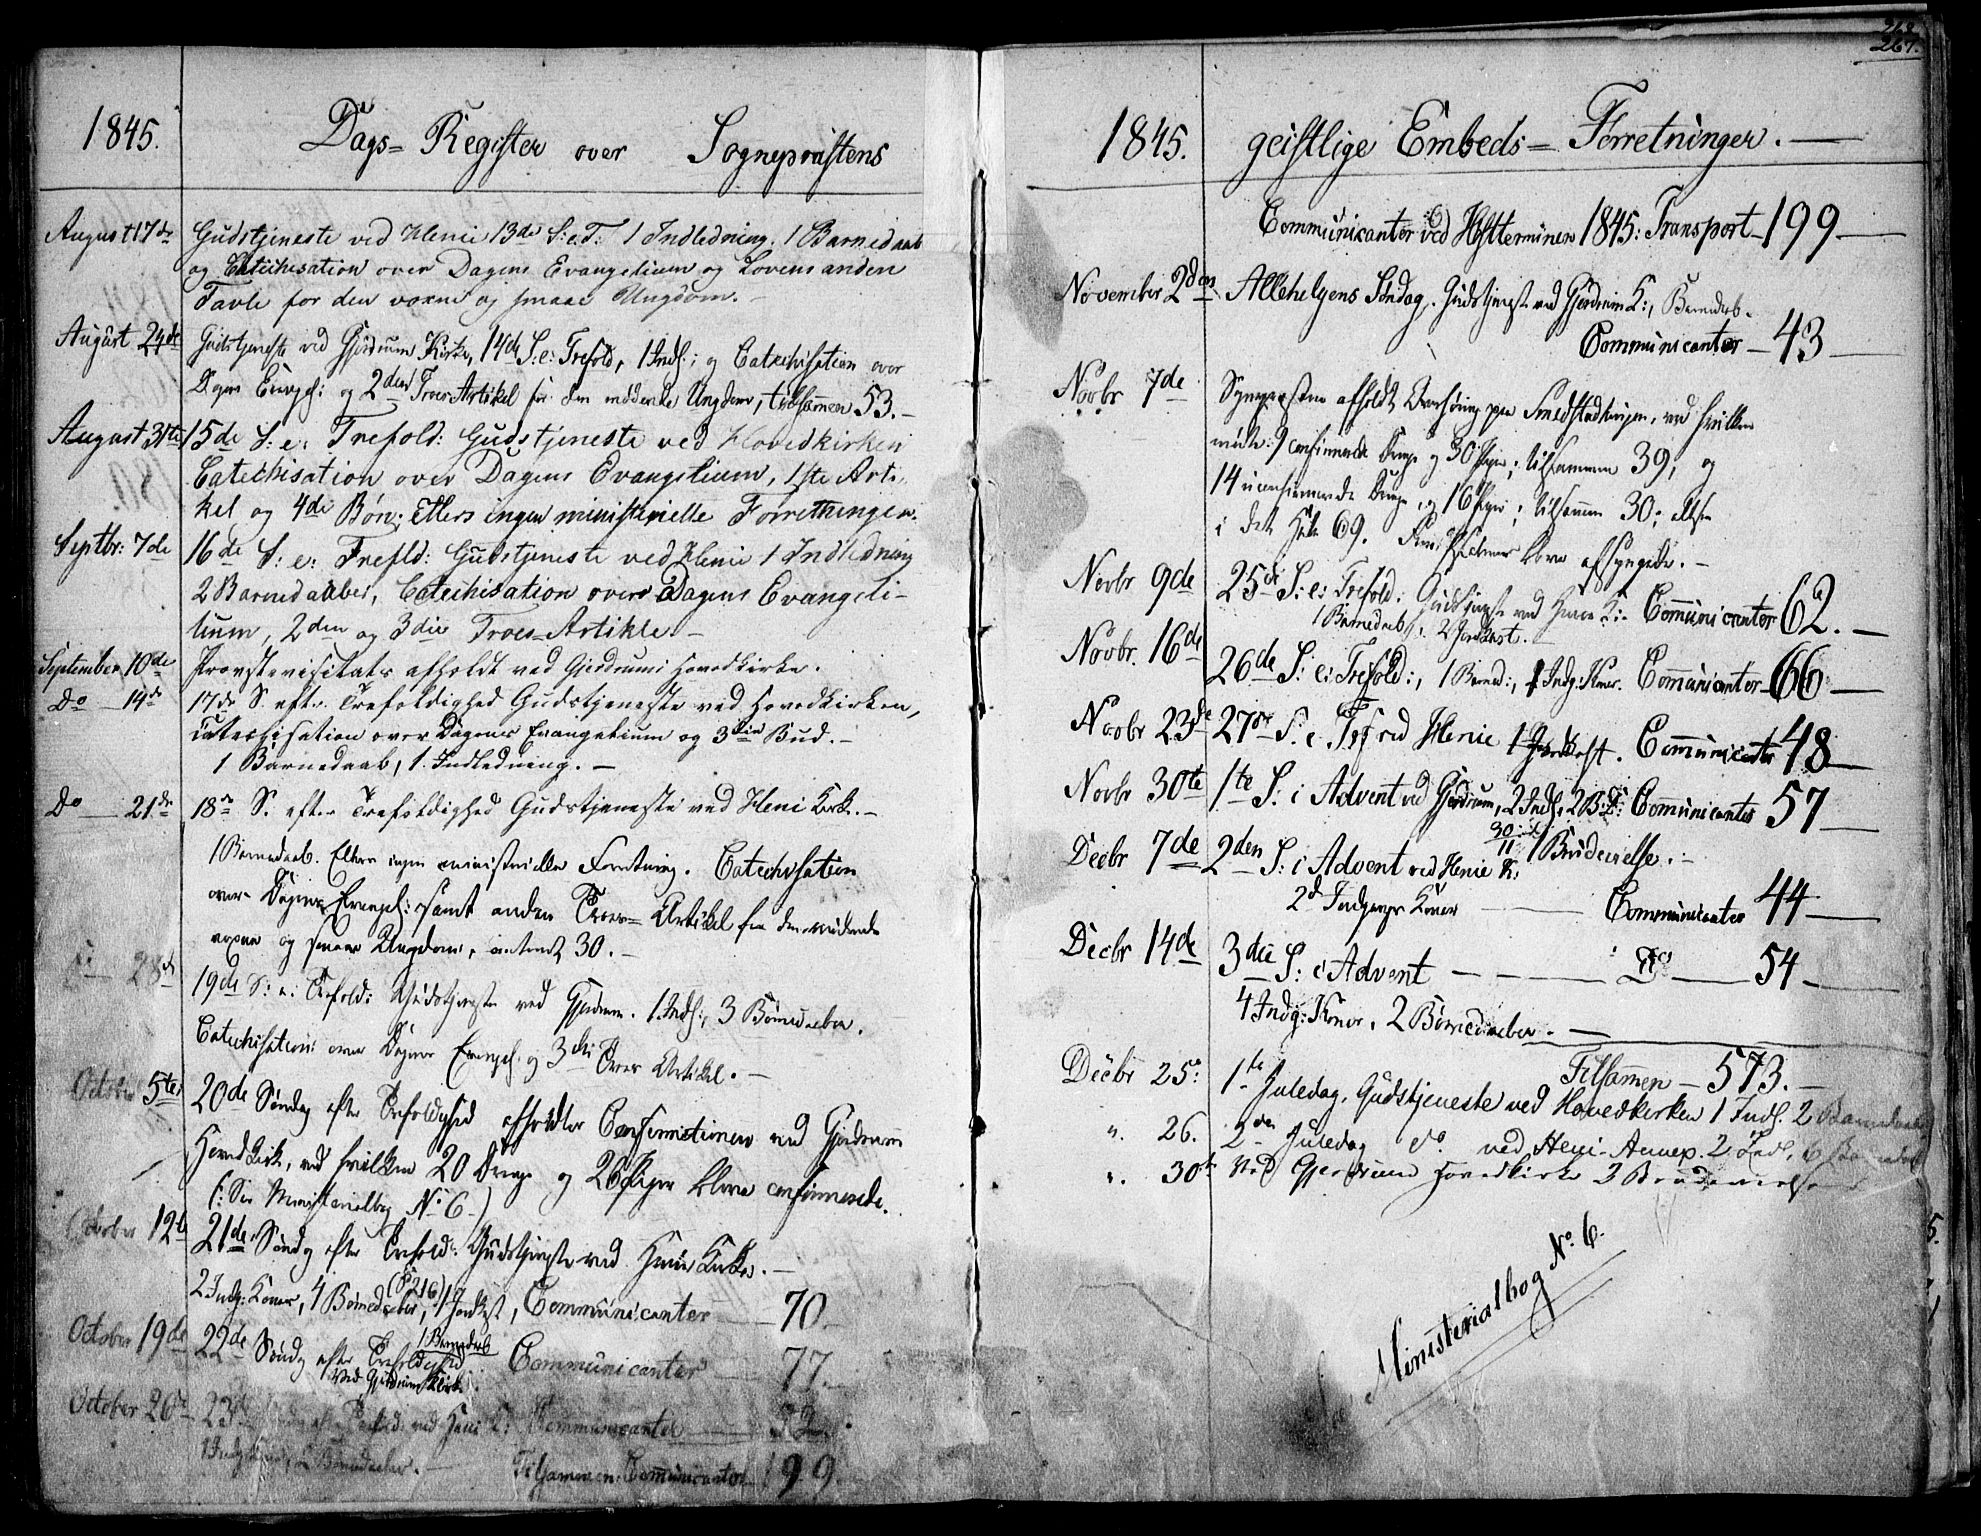 1845.
Dags= Register over Sognepræstens
August 17de Gudstjeneste ved Henie 13de S: e. T: 1 Indledning. 1 Barnedaab
og Catechisation over Dagens Evangelium og Lovens anden
Tavle for den voxne og smaae Ungdom. -
August 24de Gudstjeneste ved Gjerdrum Kirke, 14de S: e: Trefold, 1 Indl: ; og Catechisation over
Dagens Evangel: og 2den Troes Artikel for den mødende Ungdom, tilsammen 53. -
August 31te 15de S: e: Trefold: Gudstjeneste ved Hovedkirken
Catechisation over Dagens Evangelium, 1ste Arti-
kel og 4de Bøn; Ellers ingen ministerielle Forretninger.
Septbr: 7de 16de S: e: Trefld: Gudstjeneste ved Henie 1 Indledning
2 Barnedaaber, Catechisation over Dagens Evangeli-
lium, 2den og 3die Troes=Artikle -
September 10de Provstevisitats afholdt ved Gjerdrums Hovedkirke.
Do 14de 17de S. efter Trefoldighed Gudstjeneste ved Hovedkirken,
Catechisation over Dagens Evangelium og 3die Bud. -
1 Barnedaab, 1. Indledning. -
Do 21de 18de S. efter Trefoldighed Gudstjeneste ved Heni Kirke. -
1 Barnedaab. Ellers ingen ministerielle Forretning. Catechisation
over Dagens Evangel: samt anden Troes= Artikel for den mødende
voxne og smaae Ungdom, 30. -
Do 28de 19de S: e: Trefold: Gudstjeneste ved Gjerdrum. 1 Indl:, 3 Barnedaaber.
Catechisation over Dagens Evangel: og 3die Troes Artikel. -
October 5te 20de Søndag efter Trefoldighed afholdtes Confirmationen ved Gjerdrum
Hovedkirke, ved hvilken 20 Drenge og 26 Piger bleve confirmerede.
(: See Ministerialbog No 6 -)
October 12te 21de Søndag efter Trefold: Gudstjeneste ved Henie Kirke. -
2 Indg: Koner, 4 Barnedaaber, (P 216) 1 Jordkast, Communicanter 70.
October 19de 22de Søndag efter Trefoldighed 1 Barnedaab Communicanter 77. -
ved Gjerdrum Kirke.
October 26de 23de ved Heni K: Communicanter 52.
1 Indg: Kone, 2 Barnedaaber. - Tilsammen: Communicanter 199.
268
267.
1845. geistlige Embeds= Forretninger. -
Communicanter ved Høstterminen 1845: Transport - 199
November 2den Allehelgens Søndag, Gudstjeneste ved Gjerdrum K:, Barnedaab.
Communicanter - 43
Novbr 7de Sognepræsten afholdt Overhøring paa Smedstadringen, ved hvilken
mødte: 9 confirmerede Drenge og 30 Piger; tilsammen 39, og
14 uconfirmerede Drenge og 16 Piger; tilsammen 30; altsaa
i det Hele 69. Psalmer bleve afsyngede. -
Novbr 9de 25de S: e: Trefold: Gudstjeneste ved Henie K: Communicanter 62. -
1 Barnedaab, 2 Jordkast. -
Novbr. 16de 26de S: e: Trefold:, 1 Barned:, 1 Indg: Kone. Communicanter 66
Novbr 23de 27de S. e. Tref ved Henie 1 Jordkast. Communicanter 48
Novbr 30te 1te S: i Advent ved Gjerdrum, 2 Indl, 2 B: D: Communicanter 57
30/11 1 Brudevielse. -
Decbr 7de 2den S: i Advent ved Henie K:
2de Indgangs Koner Communicanter 44
Decbr 14de 3die S: i Advent Do 54
4 Indg: Koner, 2 Barnedaaber. -
Tilsammen - 573. -
Decbr 25de 1te Juledag, Gudstjeneste ved Hovedkirken 1 Indl. 2 Barnedaab
" 26. 2den Juledag do ved Heni Annex. 2 Indl. 6 Barnedaab
" 30te Ved Gjerdrum Hovedkirke 3 Brudevielser
Ministerialbog No. 6.